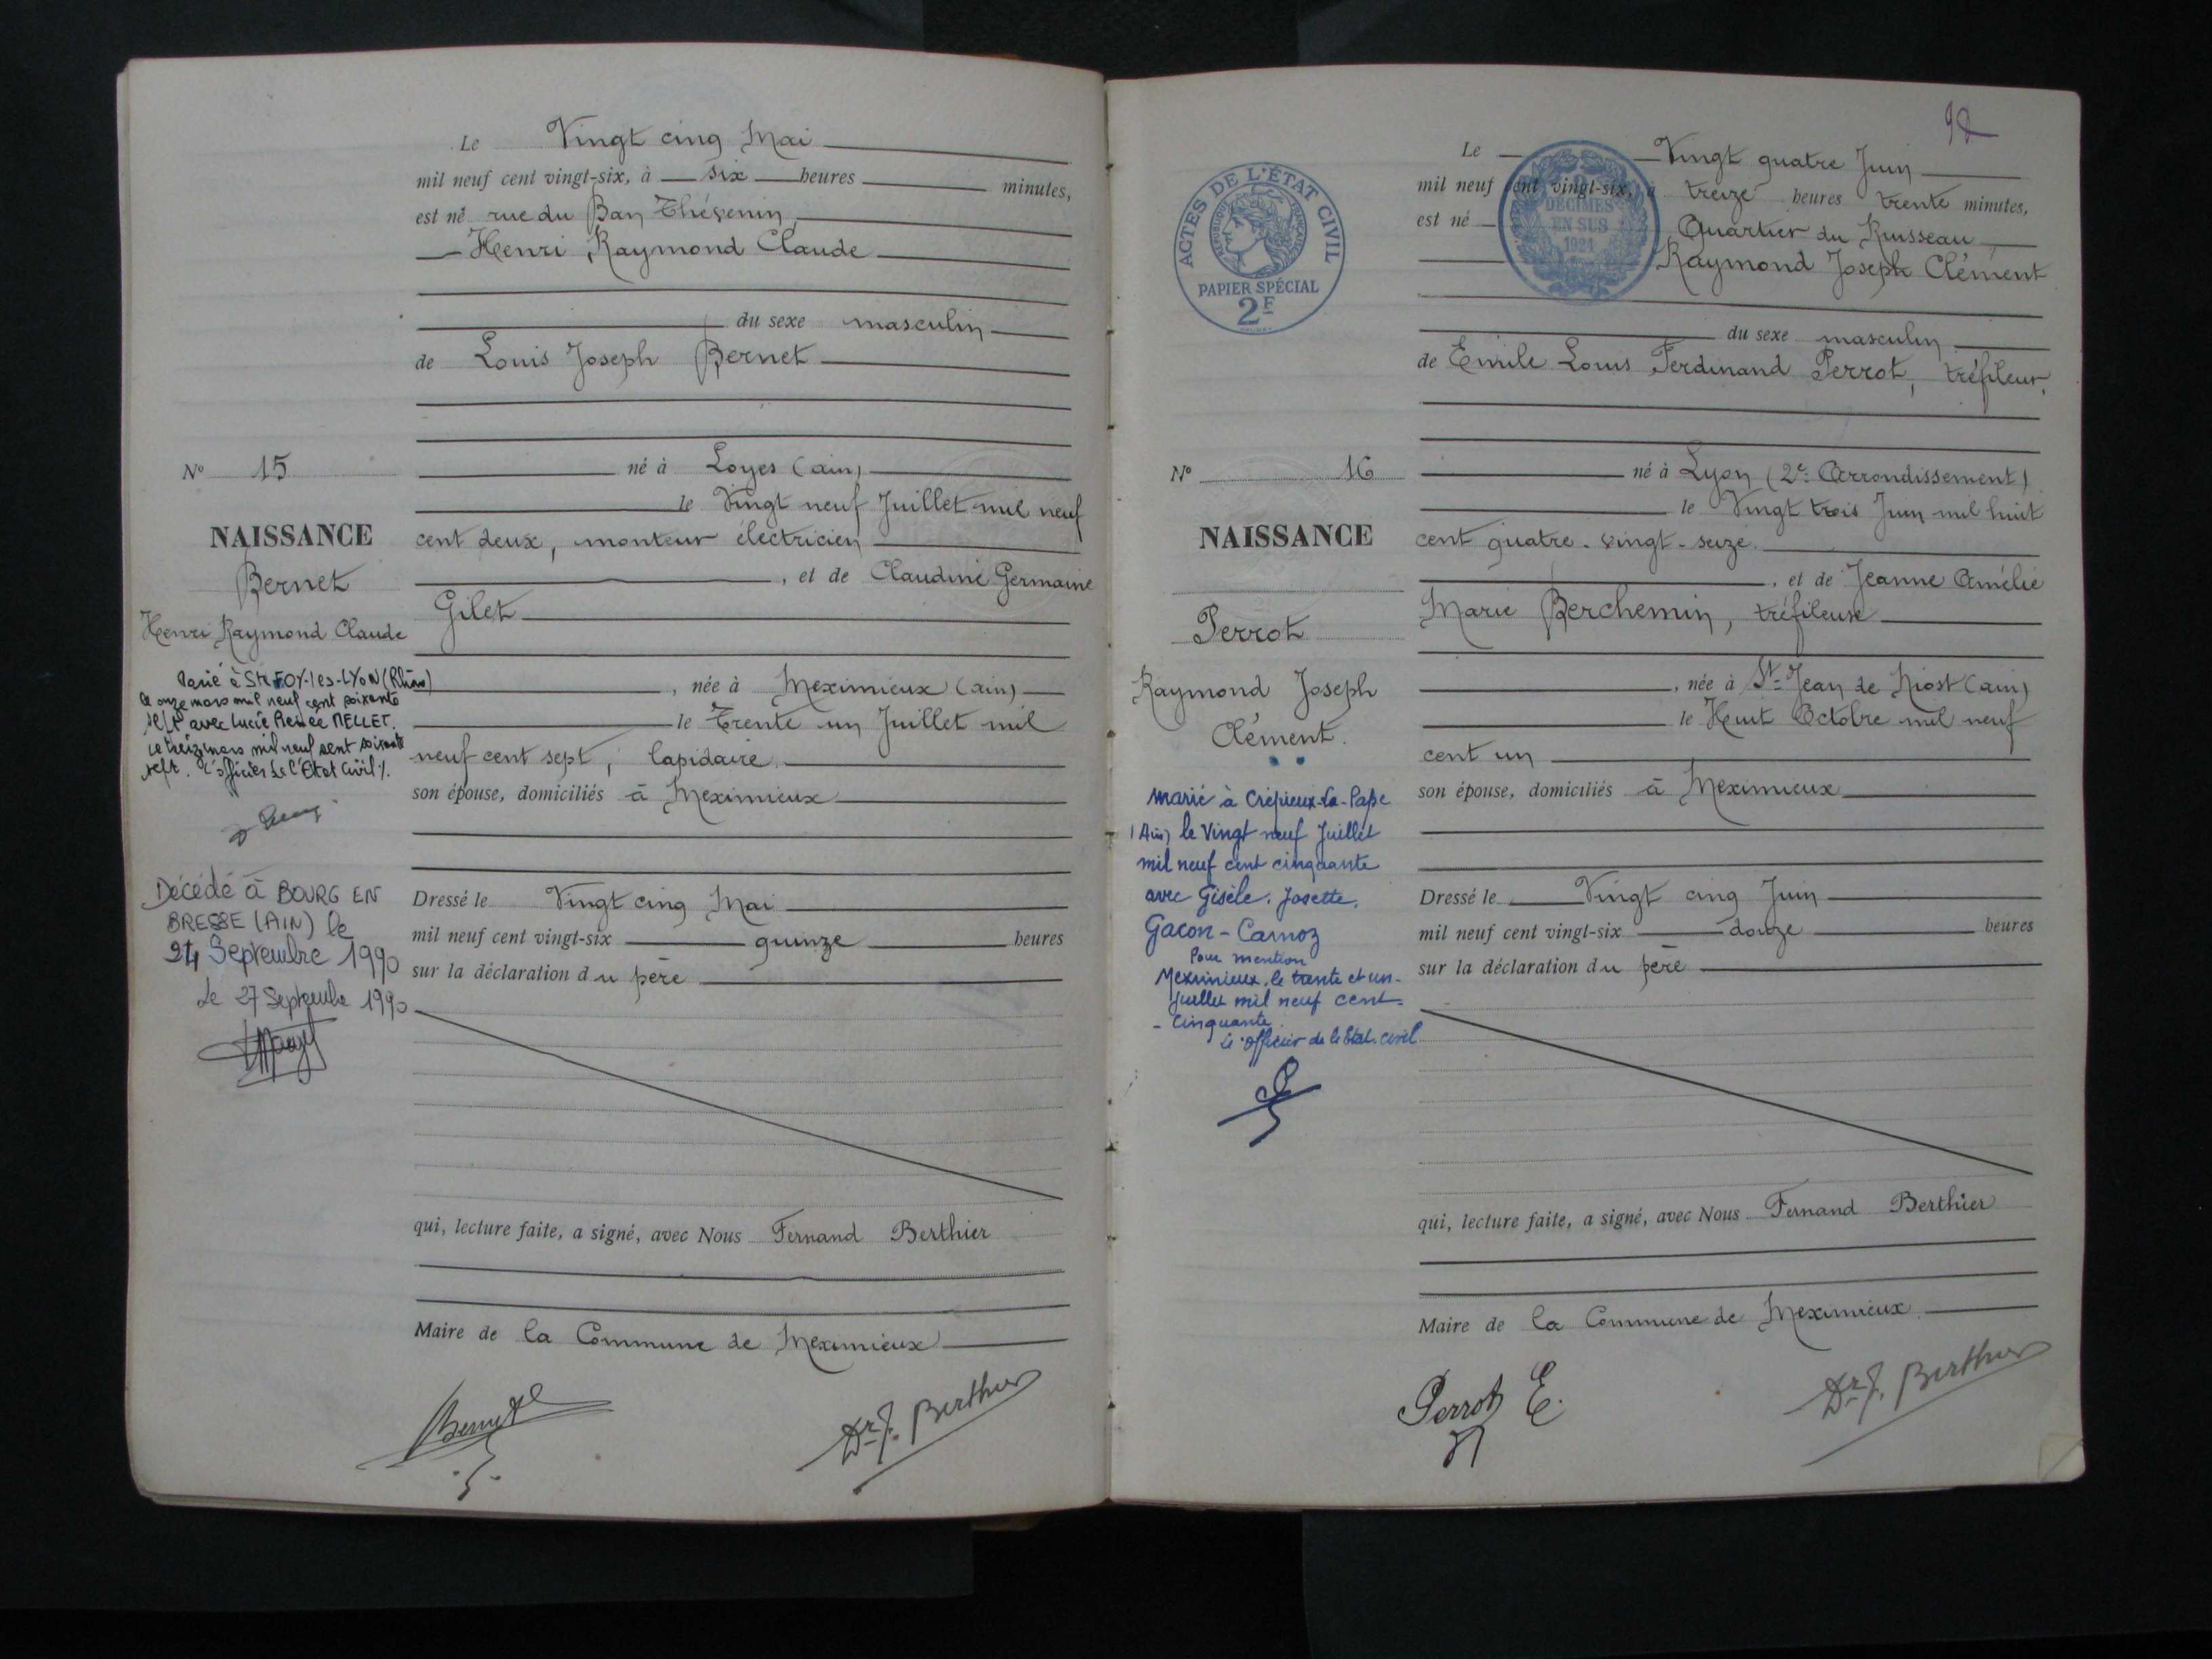 Le Vingt cinq Mai
mil neuf cent vingt-six, à six heures minutes,
est né rue du Ban Thévenin,
Henri, Raymond Claude
du sexe masculin
de Louis Joseph Bernet
né à Loyes (ain)
le Vingt neuf Juillet mil neuf
cent deux, monteur électricien
, et de Claudine Germaine
Gilet
, née à Meximieux (ain)
le Trente un Juillet mil
neuf cent sept, lapidaire
son épouse, domiciliés à Meximieux
Dressé le Vingt cinq Mai
mil neuf cent vingt-six quinze heures
sur la déclaration du père
qui, lecture faite, a signé, avec Nous Fernand Berthier
Maire de la Commune de Meximieux
Dr F. Berthier
N° 15
NAISSANCE
Bernet
Henri Raymond Claude
Marié à Ste FOY-les-LYON (Rhône)
le onze mars mil neuf cent soixante
sept avec Lucie Renée MELLET.
Le treize mars mil neuf cent soixante
sept. L'officier de l'Etat Civil %.
Décédé à BOURG EN
BRESSE (AIN) le
24 Septembre 1990
Le 27 Septembre 1990
ACTES DE L'ÉTAT CIVIL
RÉPUBLIQUE FRANÇAISE
PAPIER SPÉCIAL
2F
DÉCIMES
EN SUS
1921
Le Vingt quatre Juin
mil neuf cent vingt-six, à treize heures trente minutes,
est né Quartier du Ruisseau,
Raymond Joseph Clément
du sexe masculin
de Emile Louis Ferdinand Perrot, tréfileur,
né à Lyon (2e Arrondissement)
le Vingt trois Juin mil huit
cent quatre-vingt-seize
, et de Jeanne Amélie
Marie Berchemin, tréfileuse
, née à St Jean de Niost (ain)
le Huit Octobre mil neuf
cent un
son épouse, domiciliés à Meximieux
Dressé le Vingt cinq Juin
mil neuf cent vingt-six douze heures
sur la déclaration du père
qui, lecture faite, a signé, avec Nous Fernand Berthier
Maire de la Commune de Meximieux
Perrot E.
Dr F. Berthier
N° 16
NAISSANCE
Perrot
Raymond Joseph
Clément.
marié à Crépieux-La-Pape
(Ain) le Vingt neuf Juillet
mil neuf cent cinquante
avec Gisèle. Josette.
Gacon-Carnoz
Pour mention
Meximieux, le trente et un-
Juillet mil neuf cent-
-cinquante
Le Officier de l'Etat. civil